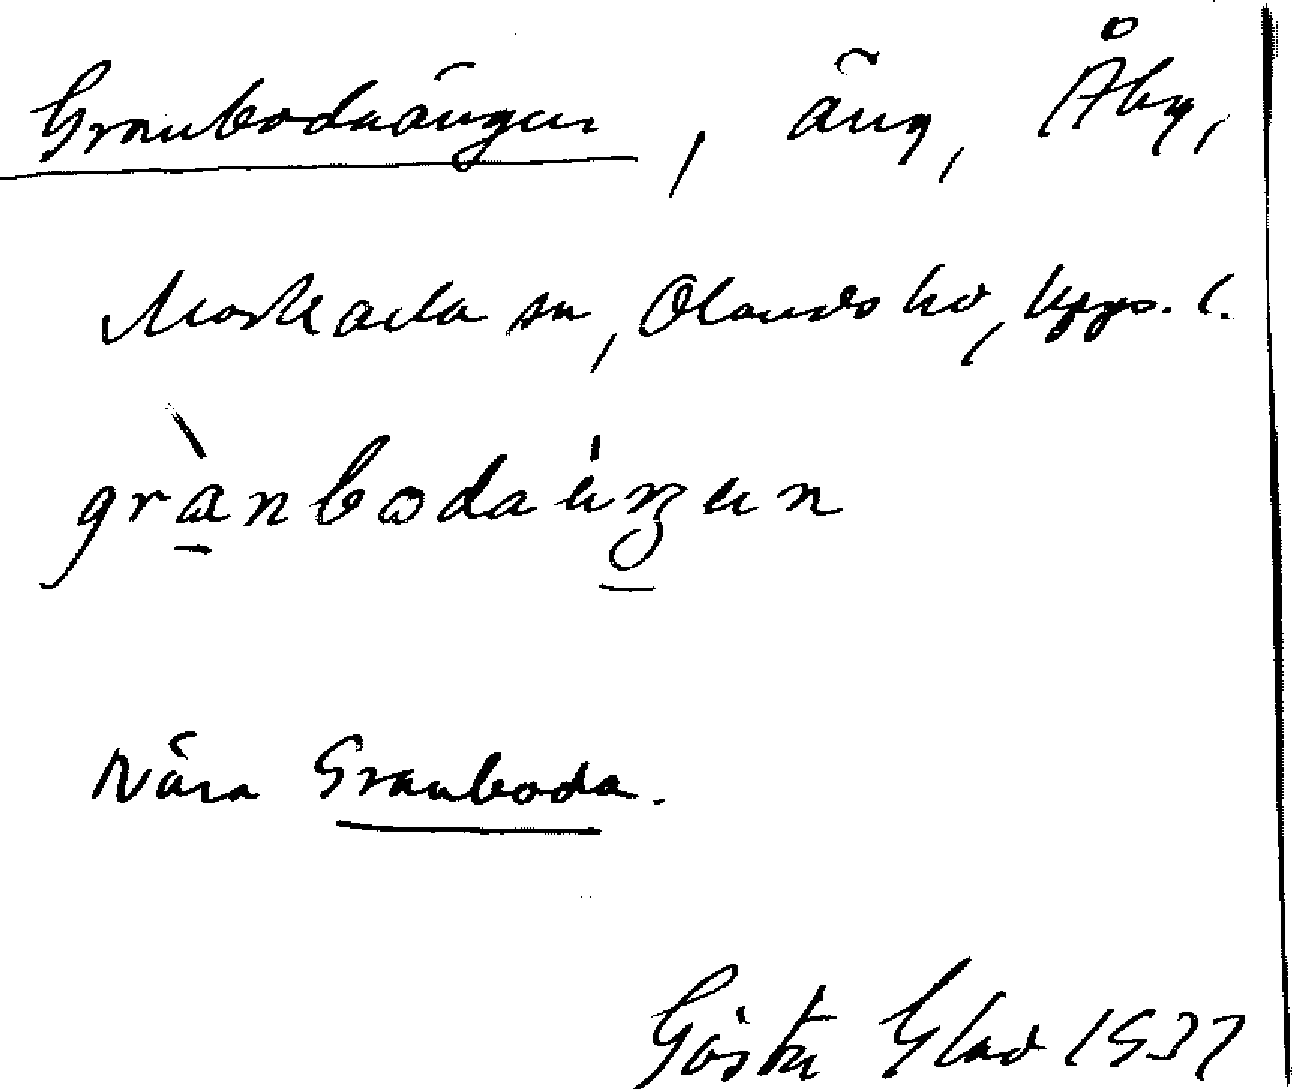 Granbodaängen, äng, Åby,
Morkarla sn, Olands hd, Upps. l.
Nära Granboda.
Gösta Glad 1937